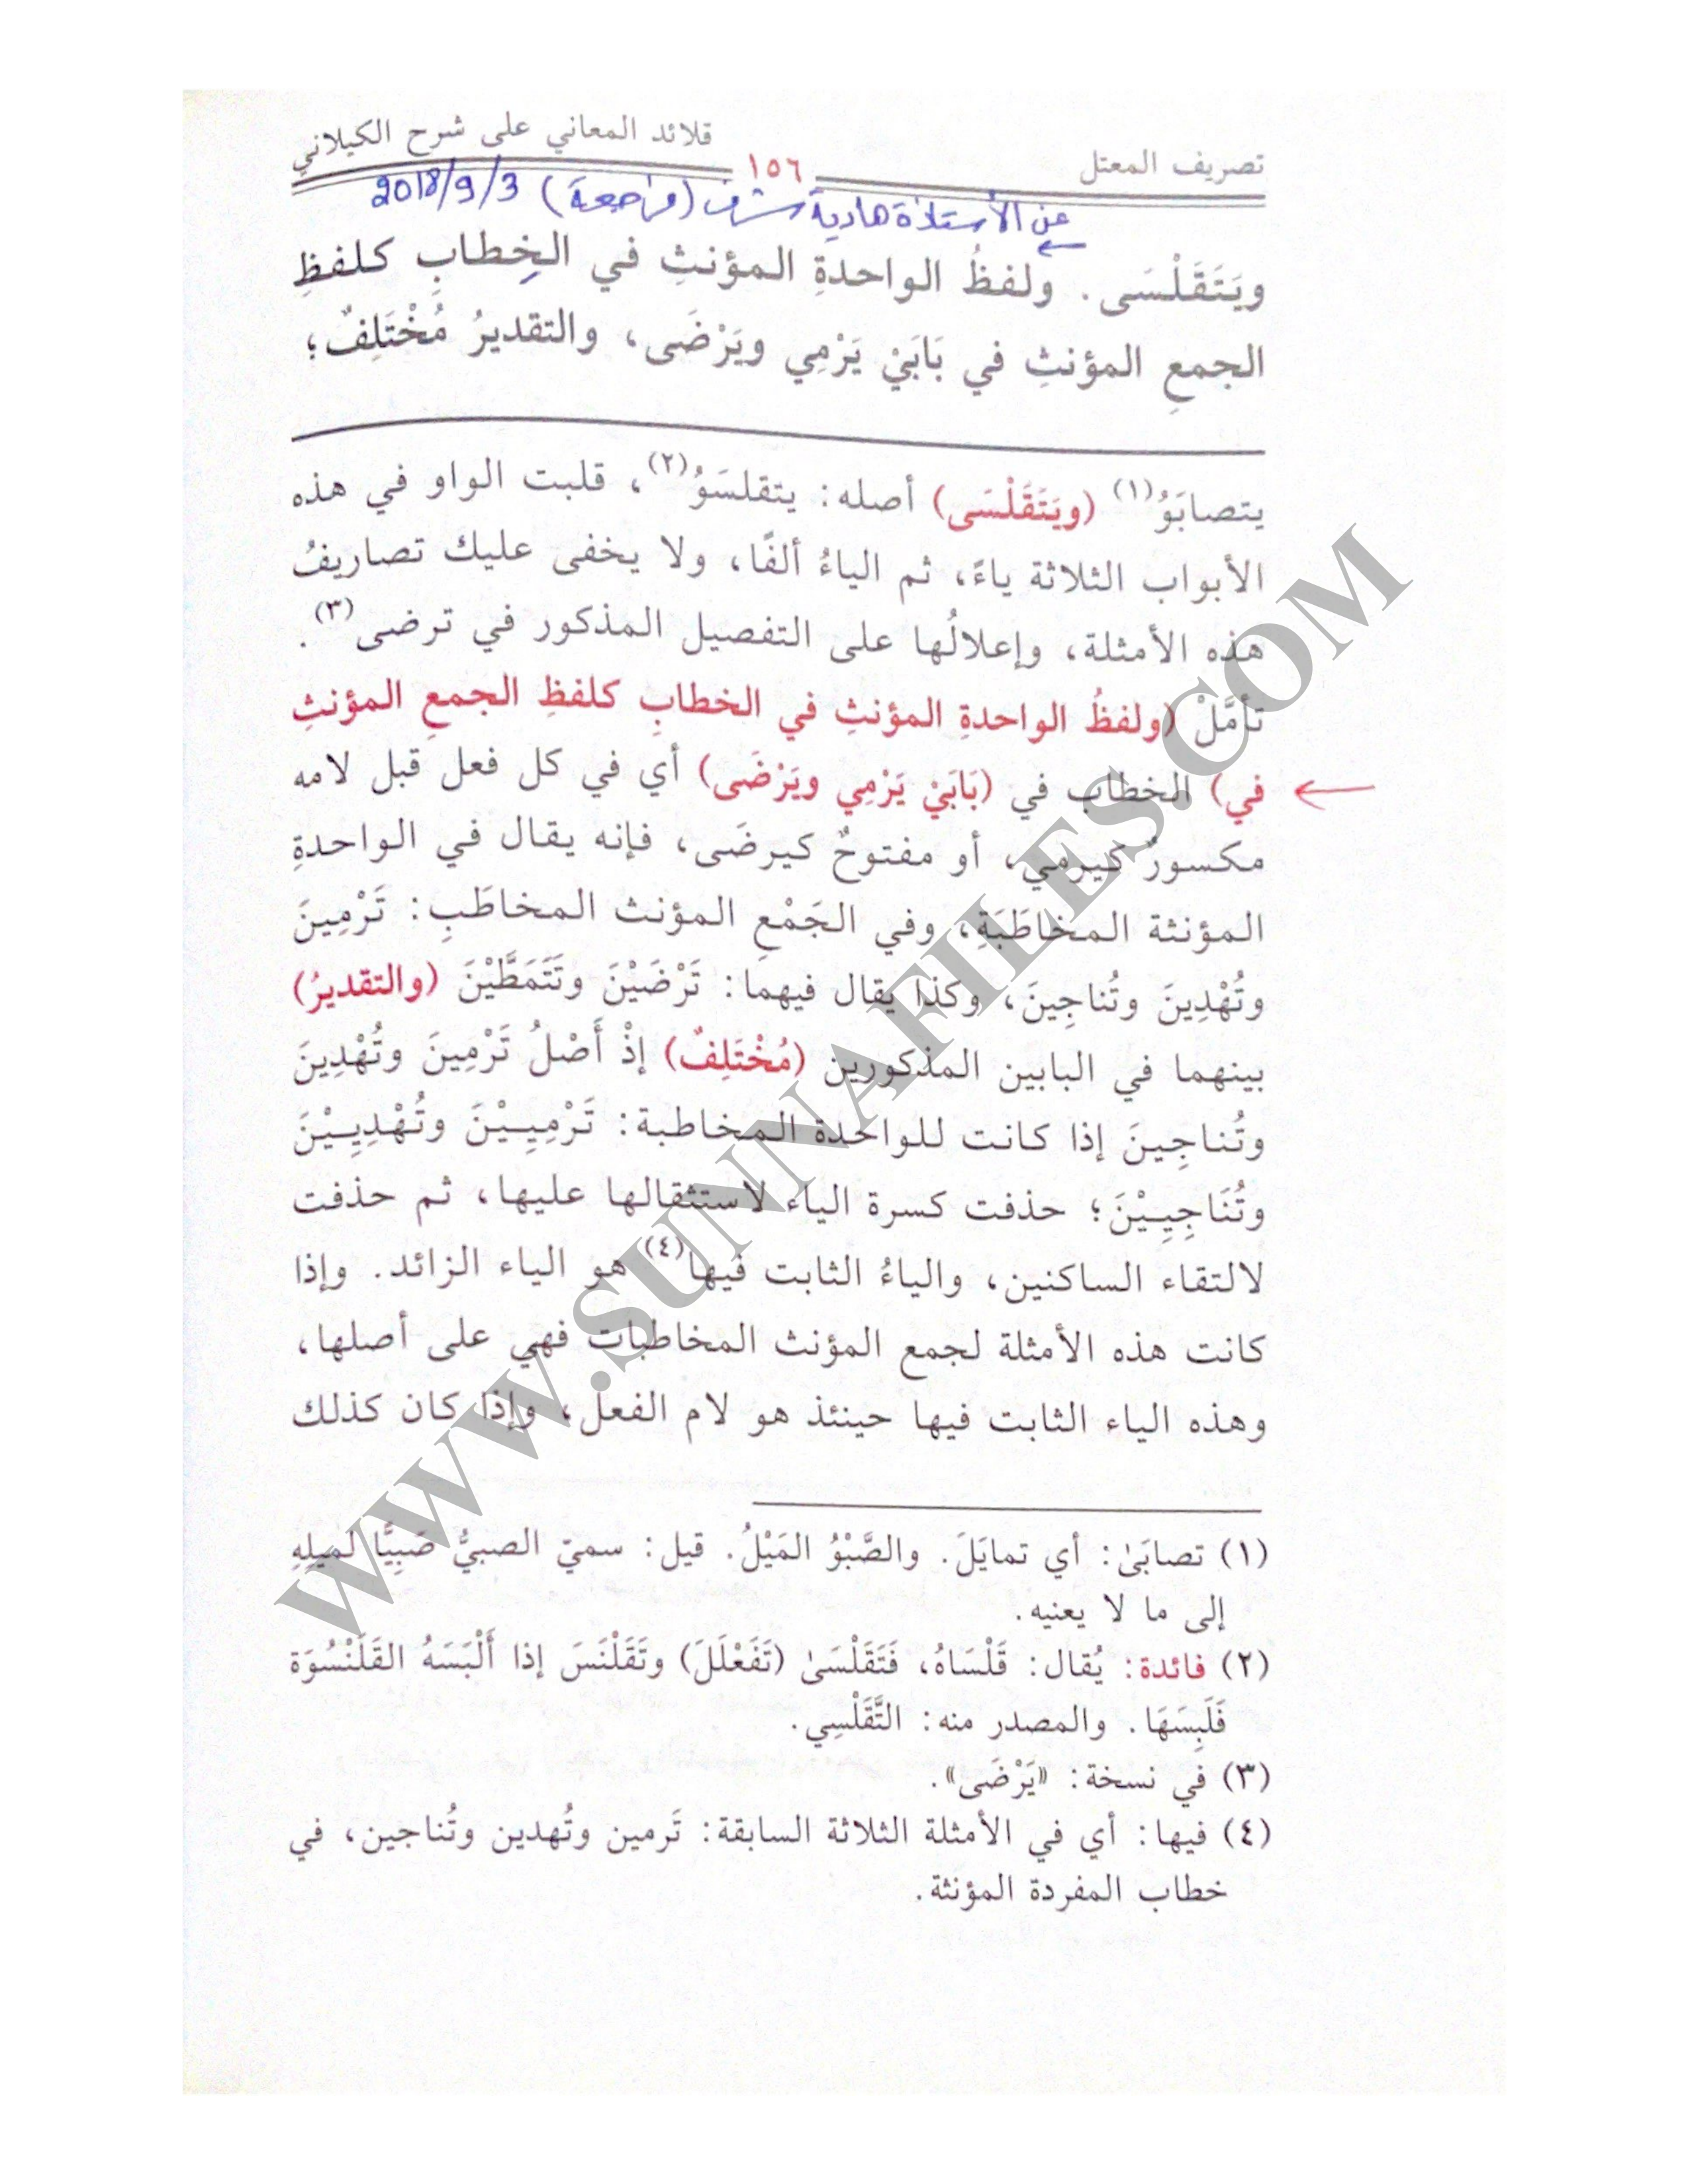 تصريف المعتل ١٥٦ قلائد المعاني على شرح الكيلاني
عن الأستاذة هادية شرف (مراجعة) 2018/9/3
ويَتَقَلْسَى. ولفظُ الواحدةِ المؤنثِ في الخِطابِ كلفظِ
الجمعِ المؤنثِ في بَابَيْ يَرْمِي ويَرْضَى، والتقديرُ مُخْتَلِفٌ؛
يتصابَوُ(١) (ويَتَقَلْسَى) أصله: يتقلسَوُ(٢)، قلبت الواو في هذه
الأبواب الثلاثة ياءً، ثم الياءُ ألفًا، ولا يخفى عليك تصاريفُ
هذه الأمثلة، وإعلالُها على التفصيل المذكور في ترضى(٣).
تأمَّلْ (ولفظُ الواحدةِ المؤنثِ في الخطابِ كلفظِ الجمعِ المؤنثِ
في) الخطاب في (بَابَيْ يَرْمِي ويَرْضَى) أي في كل فعل قبل لامه
مكسورٌ كيرمي، أو مفتوحٌ كيرضَى، فإنه يقال في الواحدةِ
المؤنثة المخاطَبَةِ، وفي الجَمْعِ المؤنث المخاطَبِ: تَرْمِينَ
وتُهْدِينَ وتُناجِينَ، وكذا يقال فيهما: تَرْضَيْنَ وتَتَمَطَّيْنَ (والتقديرُ)
بينهما في البابين المذكورين (مُخْتَلِفٌ) إذْ أَصْلُ تَرْمِينَ وتُهْدِينَ
وتُناجِينَ إذا كانت للواحدة المخاطبة: تَرْمِيِيْنَ وتُهْدِيِيْنَ
وتُنَاجِيِيْنَ؛ حذفت كسرة الياء لاستثقالها عليها، ثم حذفت
لالتقاء الساكنين، والياءُ الثابت فيها(٤) هو الياء الزائد. وإذا
كانت هذه الأمثلة لجمع المؤنث المخاطبات فهي على أصلها،
وهذه الياء الثابت فيها حينئذ هو لام الفعل، وإذا كان كذلك
(١) تصابَىٰ: أي تمايَلَ. والصَّبْوُ المَيْلُ. قيل: سميّ الصبيُّ صَبِيًّا لميلِهِ
إلى ما لا يعنيه.
(٢) فائدة: يُقال: قَلْسَاهُ، فَتَقَلْسَىٰ (تَفَعْلَلَ) وتَقَلْنَسَ إذا أَلْبَسَهُ القَلَنْسُوَة
فَلَبِسَهَا. والمصدر منه: التَّقَلْسِي.
(٣) في نسخة: «يَرْضَى».
(٤) فيها: أي في الأمثلة الثلاثة السابقة: تَرمين وتُهدين وتُناجين، في
خطاب المفردة المؤنثة.
WWW.SUNNAFILES.COM